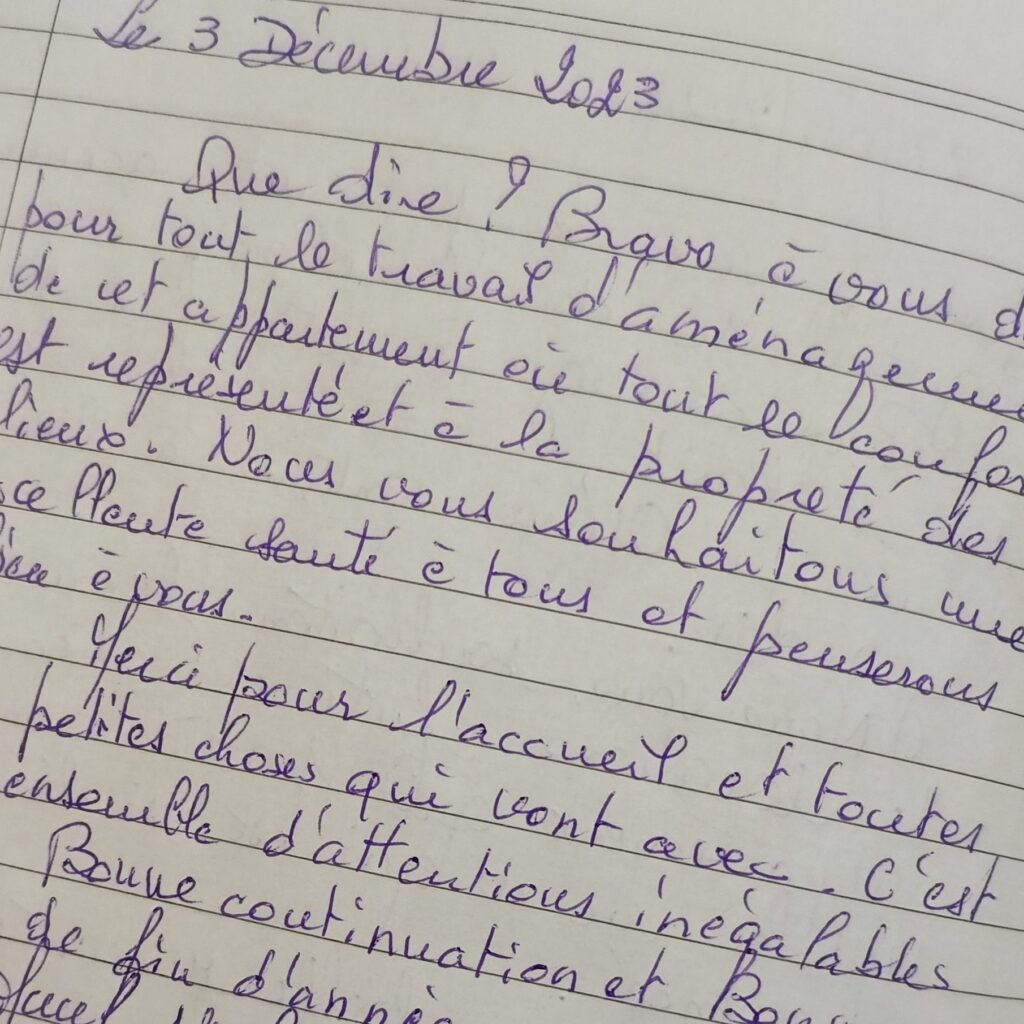 Le 3 Décembre 2023
Que dire ? Bravo à vous d
pour tout le travail d'aménageme
de cet appartement où tout le confor
est représenté et à la propreté des
lieux. Nous vous souhaitons une
cellente santé à tous et penserons
ien à vous.
Merci pour l'accueil et toutes
petites choses qui vont avec. C'est
ensemble d'attentions inégalables
Bonne continuation et Bonn
de fin d'année